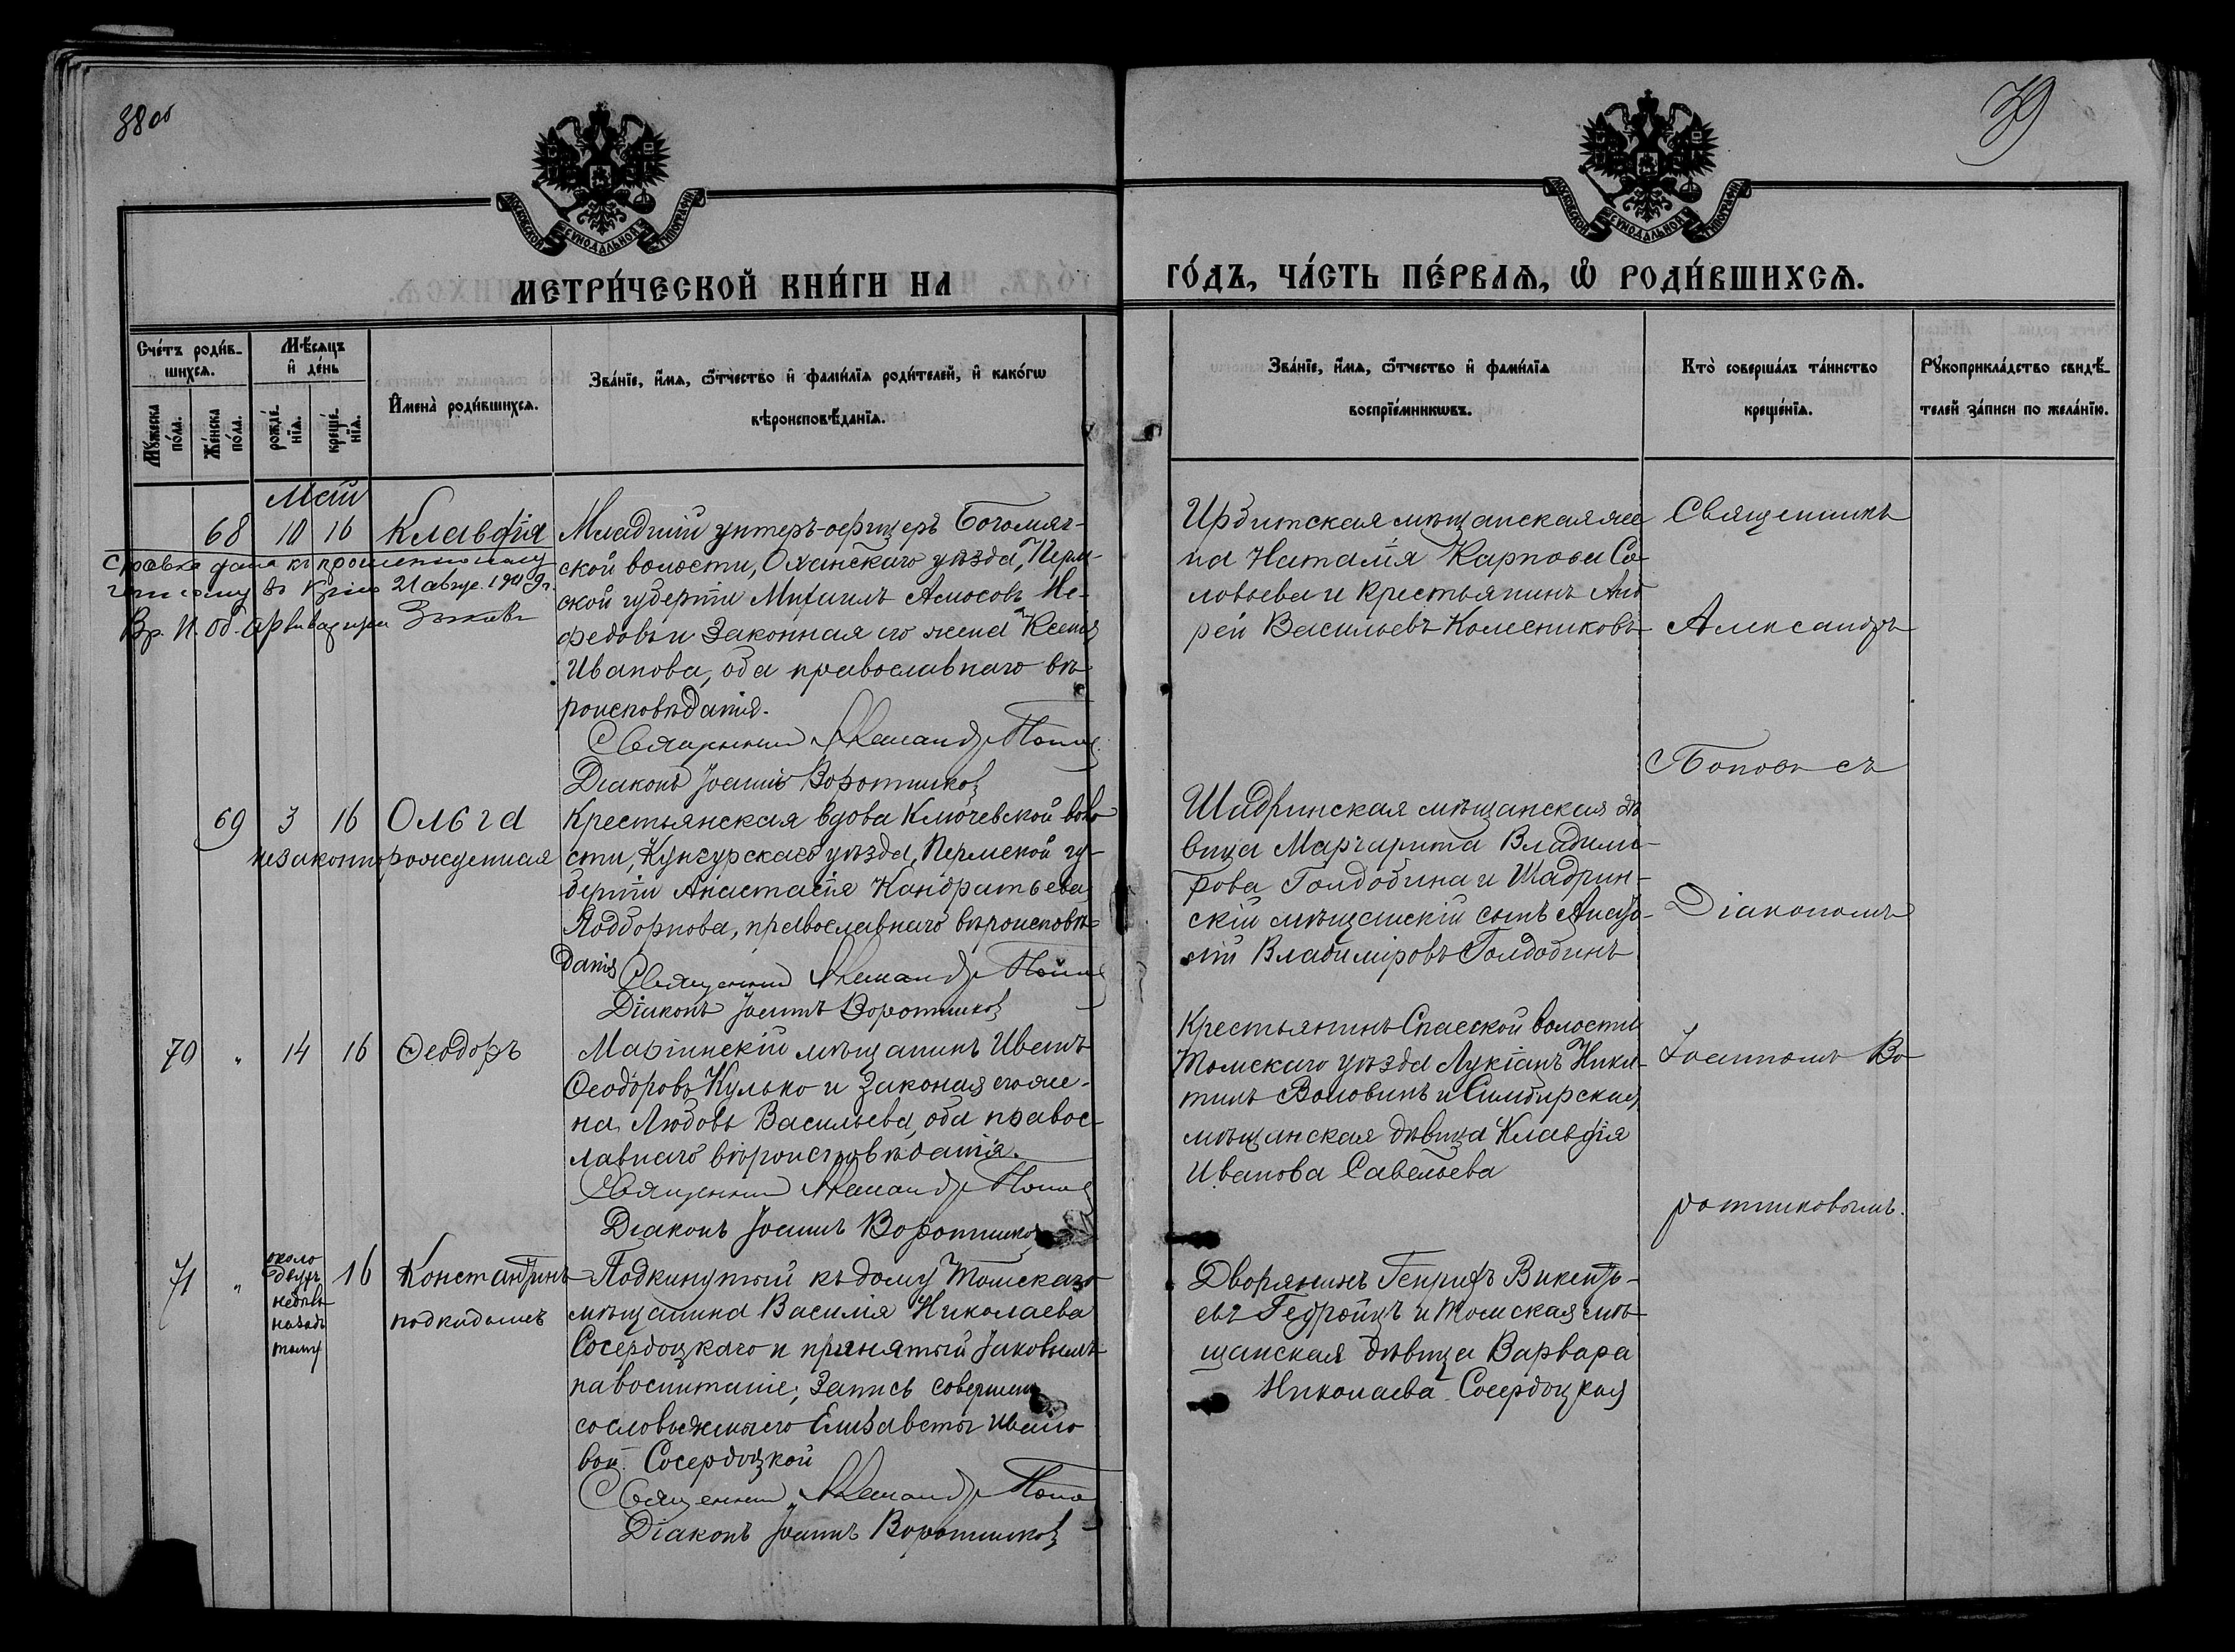 38 об
39
МОСКОВСКОЙ СѴНОДАЛЬНОЙ ТИПОГРАФІИ
МОСКОВСКОЙ СѴНОДАЛЬНОЙ ТИПОГРАФІИ
МЕТРИ́ЧЕСКОЙ КНИ́ГИ НА
ГО́ДЪ, ЧА́СТЬ ПЕ́РВАѦ, Ѡ РОДИ́ВШИХСѦ.
Счéтъ роди́в-
шихсѧ.
Мꙋ́жеска
по́ла.
Же́нска
по́ла.
Мѣ́сѧцъ
и҆ де́нь
рожде́-
нїѧ.
креще́-
нїѧ.
И҆мена̀ роди́вшихсѧ.
Зва́нїе, и҆́мѧ, ѻ҆́тчество и҆ фами́лїѧ роди́телей, и҆ како́гѡ
вѣроисповѣ́данїѧ.
Зва́нїе, и҆́мѧ, ѻ҆́тчество и҆ фами́лїѧ
воспрїе́мникѡвъ.
Кто̀ соверша́лъ та́инство
креще́нїѧ.
Рꙋкоприкла́дство свидѣ́-
телей за́писи по жела́нїю.
Май
68 10 16 Клавдія
Младшій унтеръ-офицеръ Богомяг-
ской волости, Оханскаго уѣзда, Перм-
ской губерніи Михаилъ Амосовъ Не-
федовъ и законная его жена Ксенія
Иванова, оба православнаго вѣ-
роисповѣданія.
Священникъ Александръ Попов
Діаконъ Іоаннъ Воротников
Справка дана
21 авгус. 1909 г.
Вр. И. об. архивариуса
Ирбитская мѣщанская же
на Наталія Карпова Со-
ловьева и крестьянинъ Анд
рей Васильевъ Колесниковъ
Священникъ
Александръ
Поповъ съ
Діакономъ
Іоанномъ Во-
ротниковымъ.
69 3 16 Ольга
незаконнорожденная
Крестьянская вдова Ключевской воло
сти, Кунгурскаго уѣзда, Пермской гу-
берніи Анастасія Кондратьева
Поддорнова, православнаго вѣроисповѣ-
данія
Священникъ Александръ Попов
Діаконъ Іоаннъ Воротников
Шадринская мѣщанская дѣ
вица Маргарита Владимі-
рова Голдобина и Шадрин-
скій мѣщанскій сынъ Анато-
лій Владиміровъ Голдобинъ
70 " 14 16 Ѳеодоръ
Маріинскій мѣщанинъ Иванъ
Ѳеодоровъ Кулько и законая его же-
на Любовь Васильева, оба правос-
лавнаго вѣроисповѣданія.
Священникъ Александръ Попов
Діаконъ Іоаннъ Воротников
Крестьянинъ Спаской волости
Томскаго уѣзда Лукіанъ Ники-
тинъ Воловинъ и Симбирская
мѣщанская дѣвица Клавдія
Иванова Савельева
71 " около
двухъ
недѣль
назадъ
тому
16 Константинъ
подкидышъ
Подкинутый къ дому Томскаго
мѣщанина Василія Николаева
Сосердоцкаго и принятый Іаковымъ
на воспитаніе; Запись совершена
со словъ жены его Елизаветы Ивано
вой Сосердоцкой
Священникъ Александръ Попов
Діаконъ Іоаннъ Воротников
Дворянинъ Генрихъ Викентъ-
евъ Гедройцъ и Томская мѣ-
щанская дѣвица Варвара
Николаева Сосердоцкая